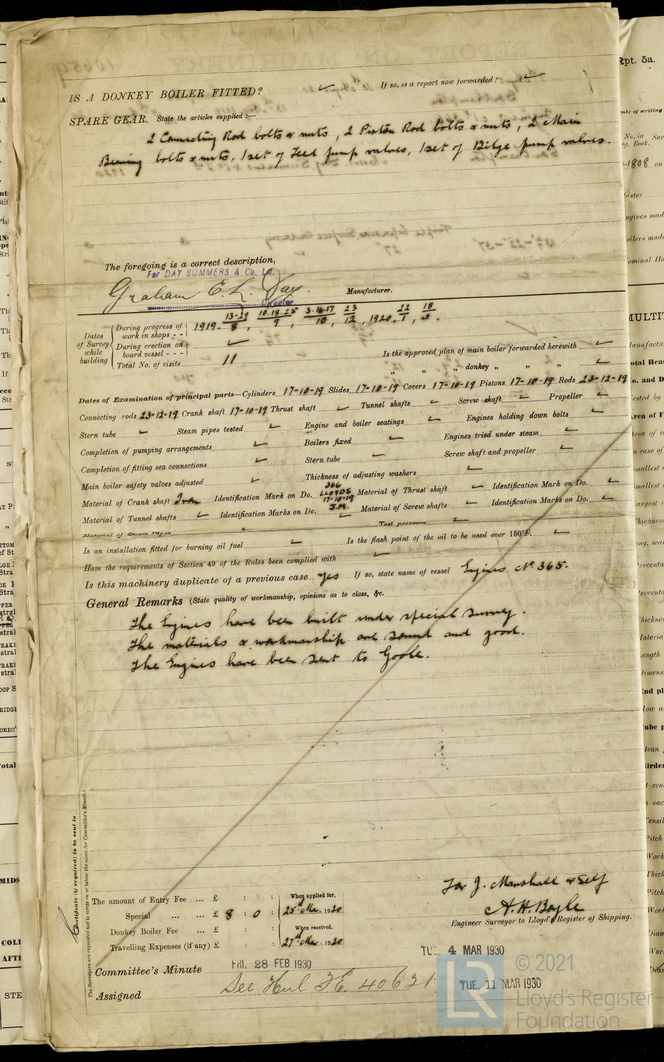 IS A DONKEY BOILER FITTED? ✓ If so, is a report now forwarded? ✓
SPARE GEAR. State the articles supplied:—
2 Connecting Rod bolts & nuts, 2 Piston Rod bolts & nuts, 2 Main
Bearing bolts & nuts, 1 set of Feed pump valves, 1 set of Bilge pump valves.
The foregoing is a correct description,
For DAY SUMMERS & Co. Ld.
Graham E. L. Day. Manufacturer.
Director
Dates of Survey while building
During progress of work in shops - - 1919. 13-29/8, 10.18.25/9, 3.16.17/10, 23/12, 1920. 22/1, 18/3.
During erection on board vessel - - - ✓
Total No. of visits 11
Is the approved plan of main boiler forwarded herewith ✓
" " " donkey " " " ✓
Dates of Examination of principal parts—Cylinders 17-10-19 Slides 17-10-19 Covers 17-10-19 Pistons 17-10-19 Rods 23-12-19
Connecting rods 23-12-19 Crank shaft 17-10-19 Thrust shaft ✓ Tunnel shafts ✓ Screw shaft ✓ Propeller ✓
Stern tube ✓ Steam pipes tested ✓ Engine and boiler seatings ✓ Engines holding down bolts ✓
Completion of pumping arrangements ✓ Boilers fixed ✓ Engines tried under steam ✓
Completion of fitting sea connections ✓ Stern tube ✓ Screw shaft and propeller ✓
Main boiler safety valves adjusted ✓ Thickness of adjusting washers ✓
Material of Crank shaft Iron Identification Mark on Do. 366 LLOYDS 17-10-19 J.M. Material of Thrust shaft ✓ Identification Mark on Do. ✓
Material of Tunnel shafts ✓ Identification Marks on Do. ✓ Material of Screw shafts ✓ Identification Marks on Do. ✓
Material of Steam Pipes Test pressure ✓
Is an installation fitted for burning oil fuel ✓ Is the flash point of the oil to be used over 150°F. ✓
Have the requirements of Section 49 of the Rules been complied with ✓
Is this machinery duplicate of a previous case yes If so, state name of vessel Engines No 365.
General Remarks (State quality of workmanship, opinions as to class, &c.
The Engines have been built under special survey.
The materials & workmanship are sound and good.
The Engines have been sent to Goole.
Certificate (if required) to be sent to
The Surveyors are requested not to write on or below the space for Committee's Minute.
The amount of Entry Fee ... £ : : When applied for.
Special ... ... £ 8 : 0 : 25th Mar. 1920
Donkey Boiler Fee ... £ : : When received.
Travelling Expenses (if any) £ : : 27th Mar. 1920
For J. Marshall & Self
A. H. Boyle
Engineer Surveyor to Lloyd's Register of Shipping.
Committee's Minute FRI. 28 FEB 1930 TUE 4 MAR 1930
Assigned See Hul F.E. 40621 TUE. 11 MAR 1930
© 2021
Lloyd's Register
Foundation
LR
Rpt. 5a.